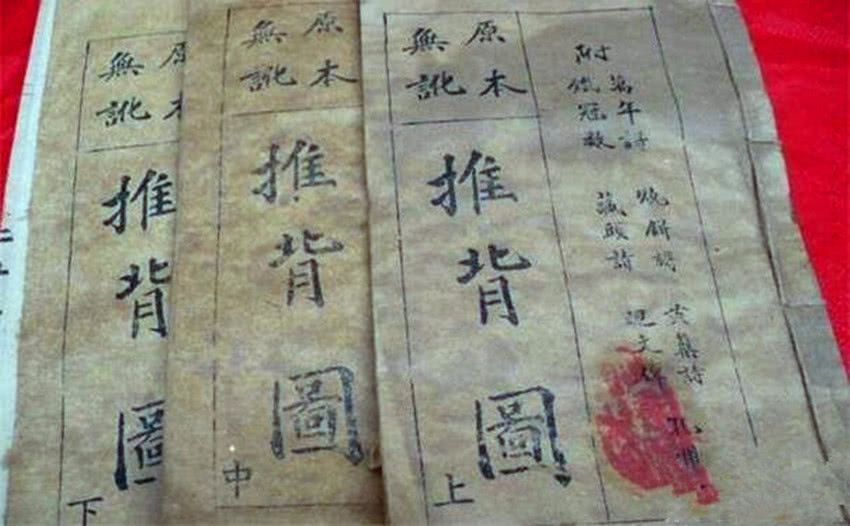 萬年詩 燒餅歌
附 鐵冠數 藏頭詩
原本
無訛
推背圖
上
原本
無訛
推背圖
中
原本
無訛
推背圖
下